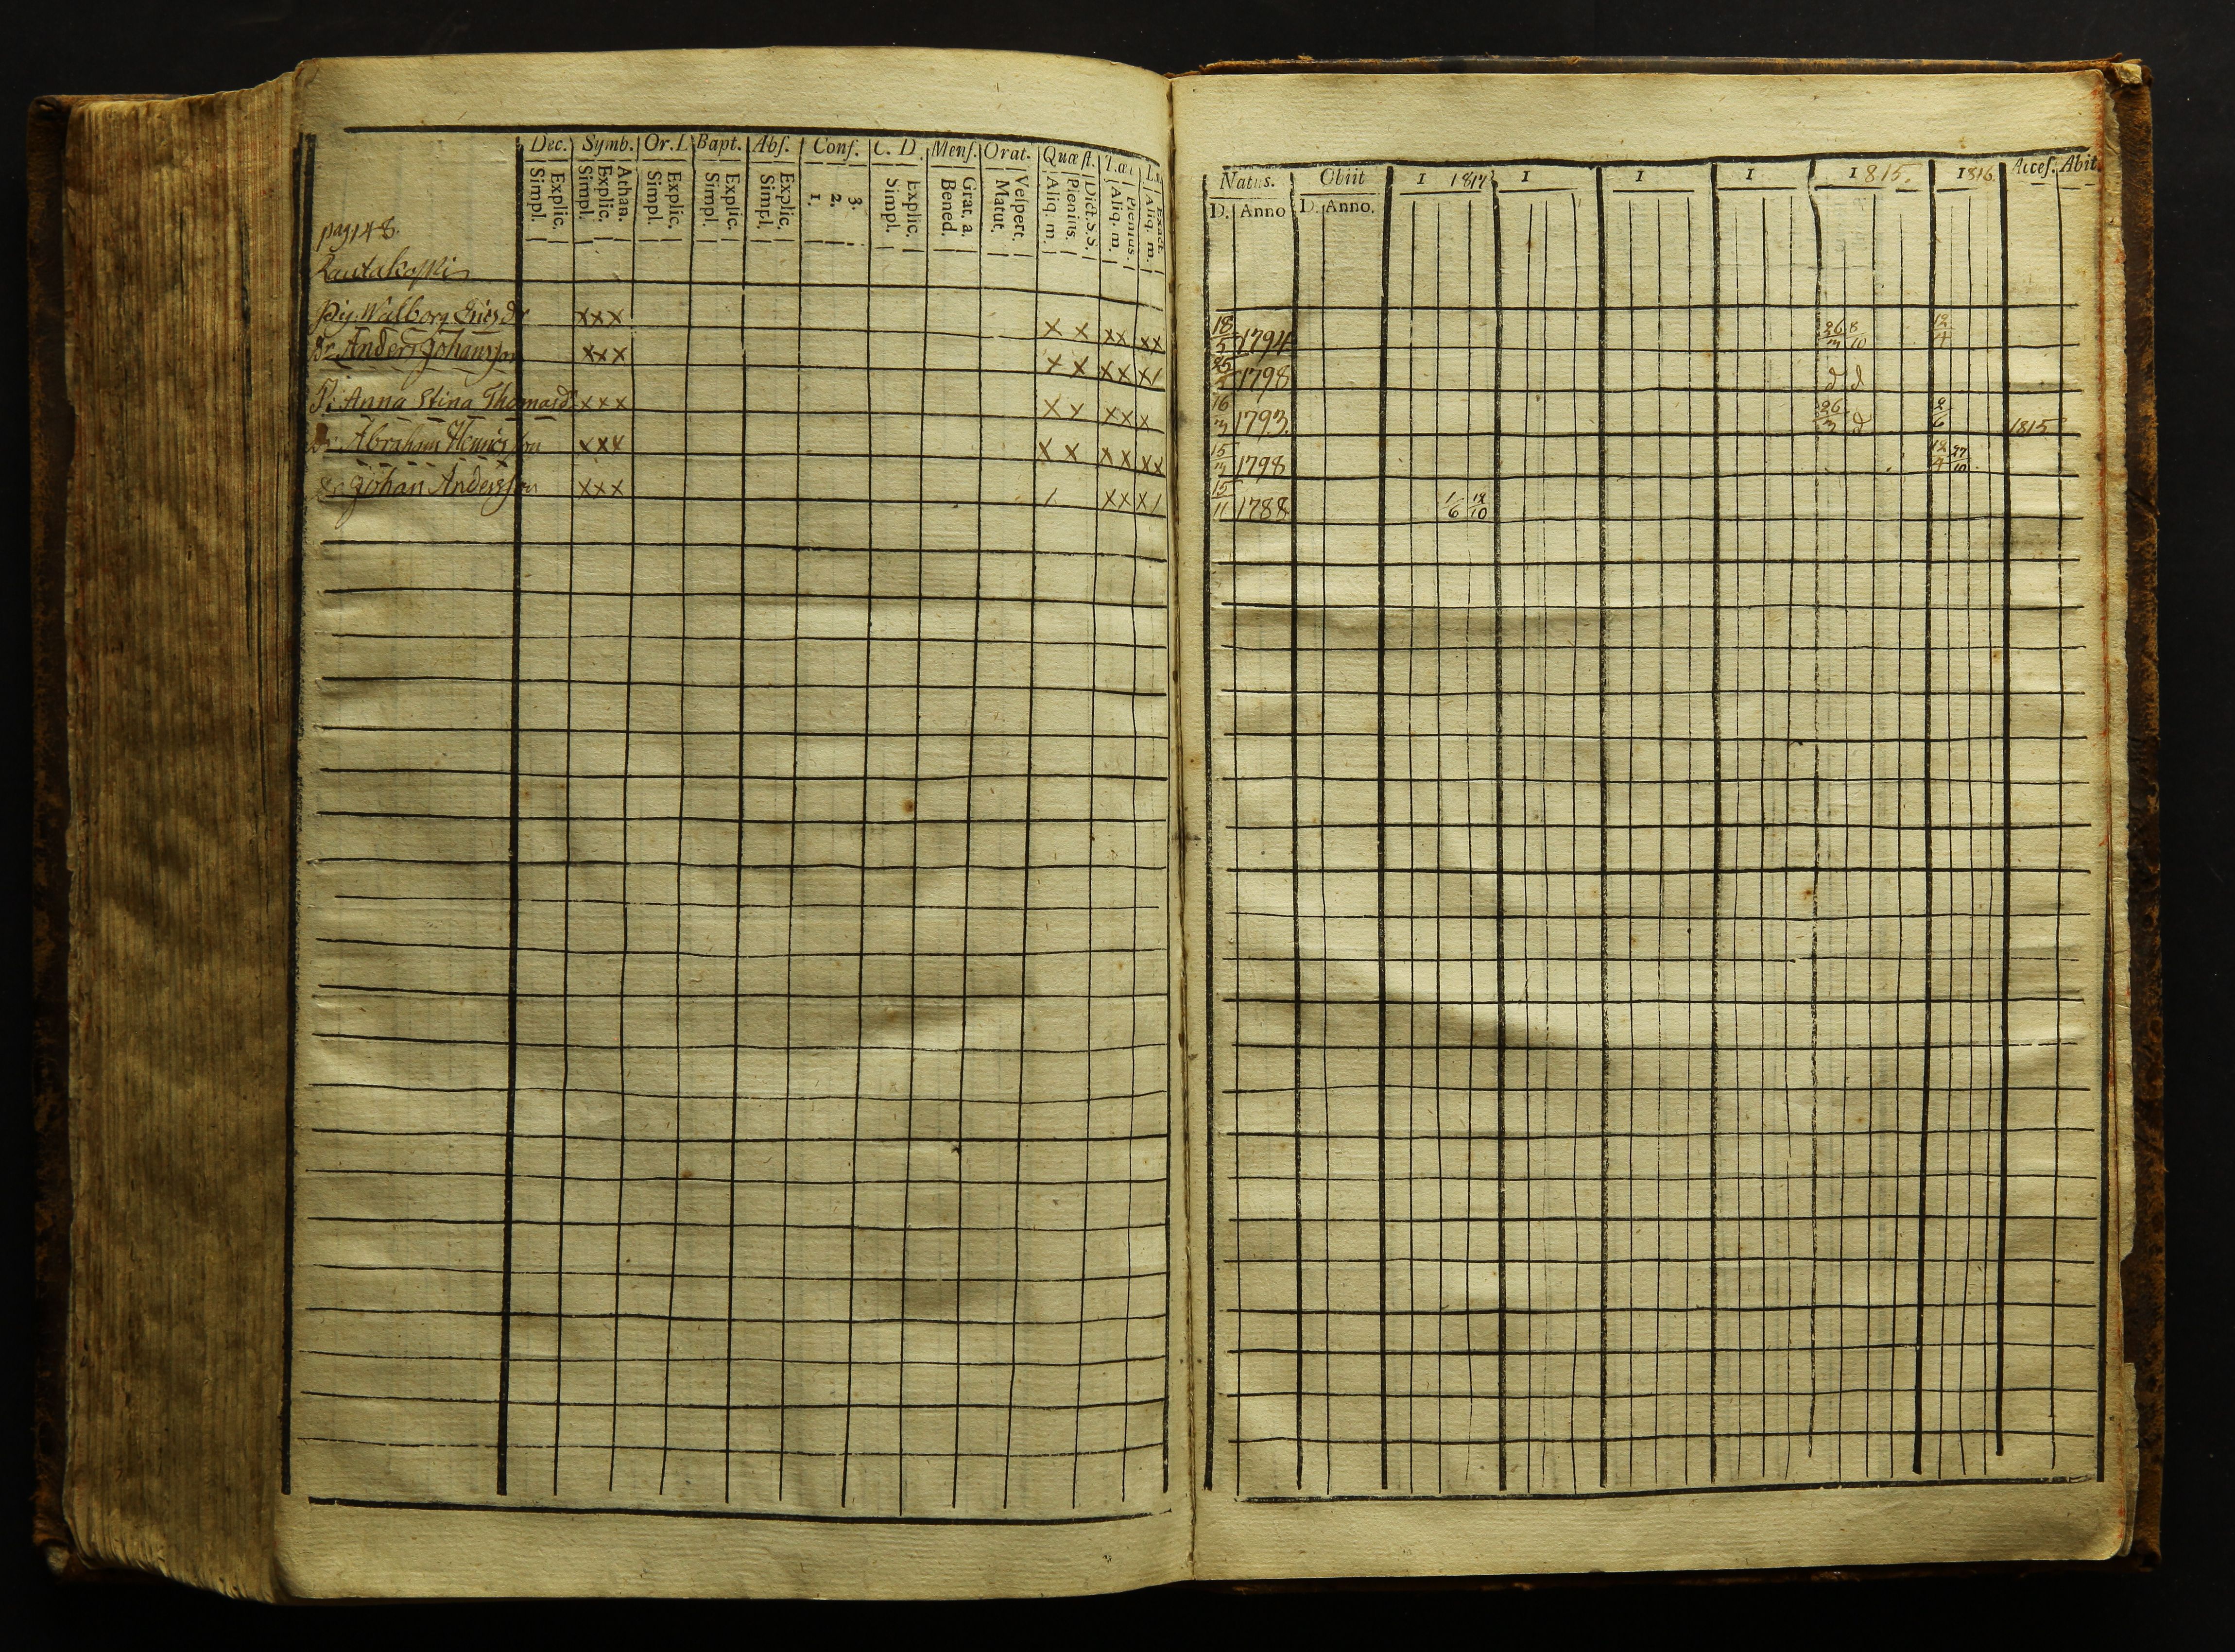 Dec. Symb. Or. I. Bapt. Abs. Conf. C. D. Mens. Orat. Quæst.
Simpl. Explic. Simpl. Explic. Athan. Simpl. Explic. Simpl. Explic. Simpl. Explic. 1. 2. 3. Simpl. Explic. Bened. Grat. a. Matut. Vespert. Aliq. m. Plenius. Dict. S. S. Aliq. m. Plenius. Aliq. m. Exact.
pag 148.
Rautakoski
Pig. Walborg Ericsdr xxx x x xx xx
Dr. Anders Johansson xxx x x xx x/
Pi Anna Stina Thomasd xxx x x xxx
Dr. Abraham Henricsson xxx x x xx xx
Dr. Johan Andersson xxx / xxx x/
Natus. Obiit I 1817 I I I 1815. 1816 Acces. Abit.
D. Anno D. Anno.
18/5 1794 26/3 8/10 12/4
1798 d d
16/3 1793. 26/3 d 2/6 1815
15/3 1798 12/4 27/10
15/11 1788 1/6 12/10